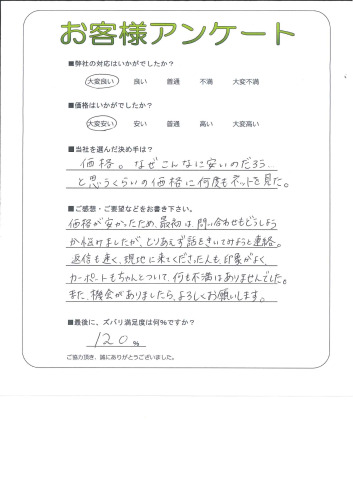 お客様アンケート
■弊社の対応はいかがでしたか?
大変良い 良い 普通 不満 大変不満
■価格はいかがでしたか?
大変安い 安い 普通 高い 大変高い
■当社を選んだ決め手は?
価格。なぜこんなに安いのだろう…
と思うくらいの価格に何度もネットを見た。
■ご感想・ご要望などをお書き下さい。
価格が安かったため、最初は、問い合わせもどうしよう
か悩みましたが、とりあえず話をきいてみようと連絡。
返信も速く、現地に来てくださった人も、印象がよく、
カーポートもちゃんとついて、何も不満はありませんでした。
また、機会がありましたら、よろしくお願いします。
■最後に、ズバリ満足度は何%ですか?
120%
ご協力頂き、誠にありがとうございました。